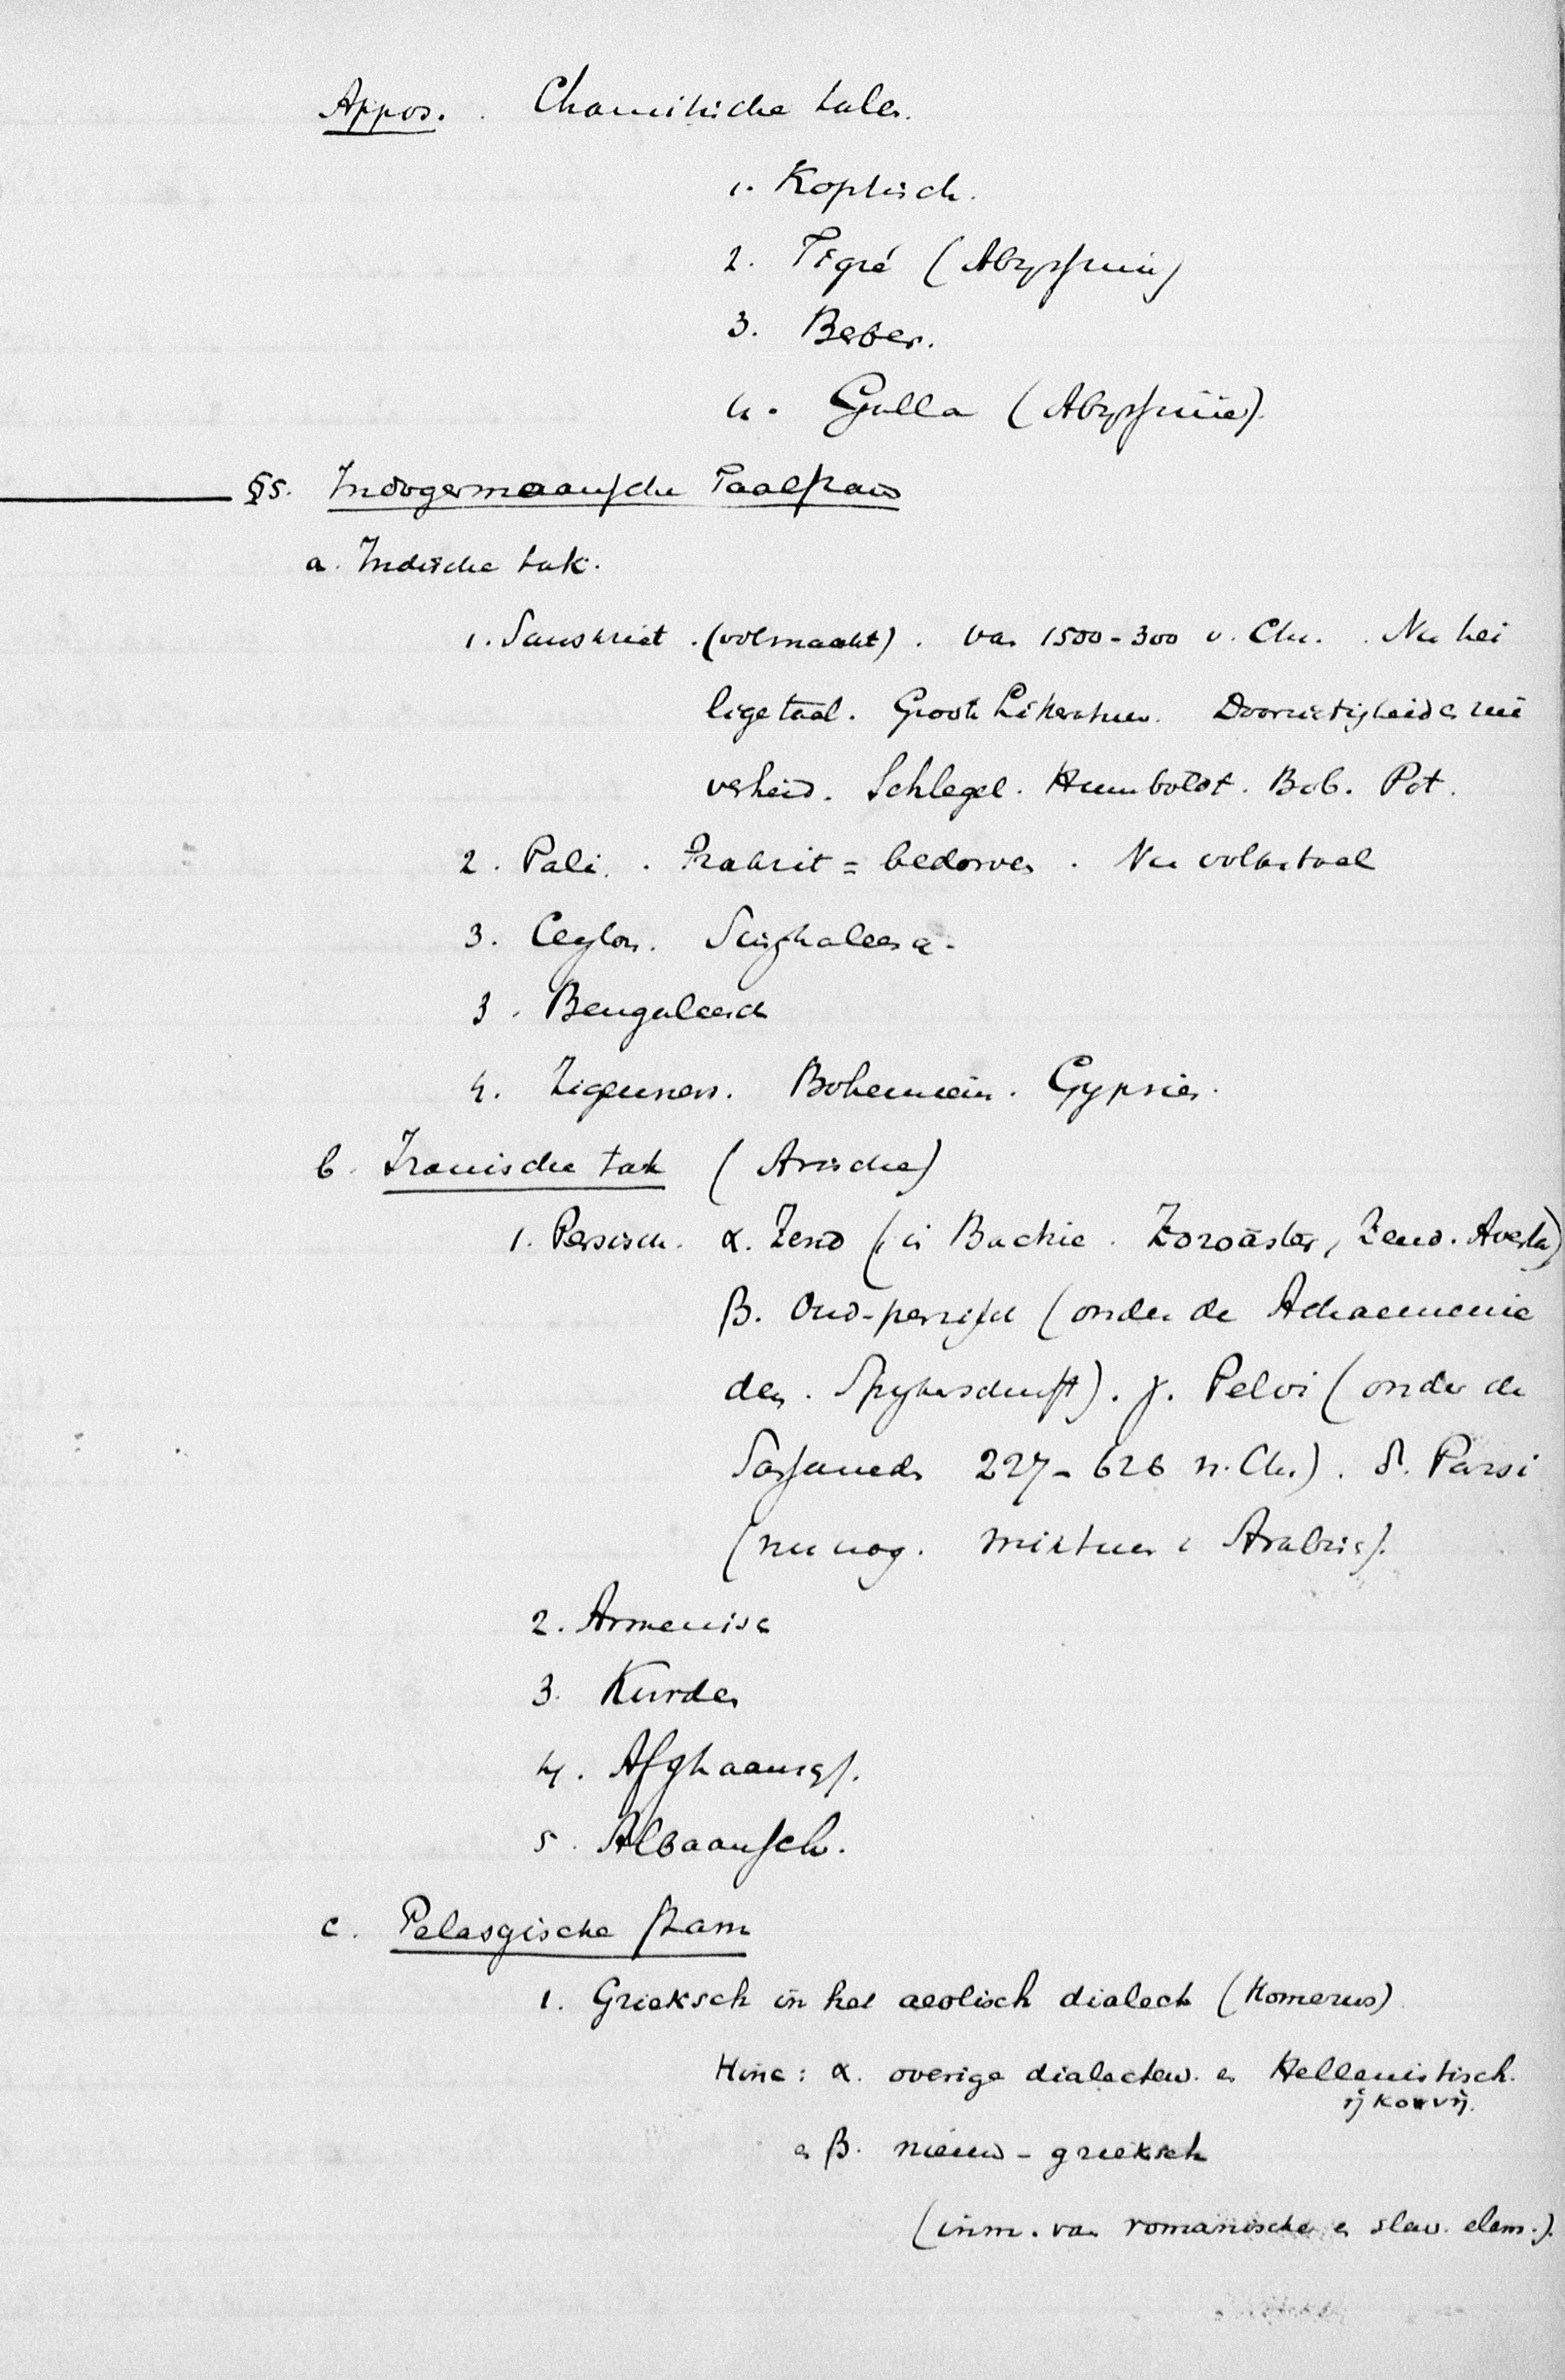 Appos. Chamitische talen.
1. Koptisch.
2. Tigré (Abyssinië)
3. Berber.
4. Galla (Abyssinië).
§5. Indogermaansche Taalstam
a. Indische tak.
1. Sanskriet. (volmaakt). van 1500-300 v. Chr. Nu hei
lige taal. Groote Literatuur. Doorzichtigheid en zui
verheid. Schlegel. Humboldt. Bob. Pot.
2. Pali. Prakrit = bedorven. Nu volkstaal
3. Ceylon. Singhaleesch.
3. Bengaleesch
4. Zigeuners. Bohemiëin. Gypsies.
b. Iranische tak (Arische)
1. Persisch. α. Zend (in Bactrie. Zoroäster, Zend. Avesta)
β. Oud-perzisch (onder de Achaemenie
den. Spykerschrift). γ. Pelvi (onder de
Sassaneden 227-626 n. Chr.). δ. Parsi
(nu nog. mixtuur c Arabisch).
2. Armenisch
3. Kurden
4. Afghaansch.
5. Albaansch.
c. Pelasgische stam
1. Grieksch in het aeolisch dialect (Homerus)
Hinc: α. overige dialecten. en Hellenistisch.
ἡ κοινή.
en β. nieuw-grieksch
(inm. van romanische en slav. elem.).